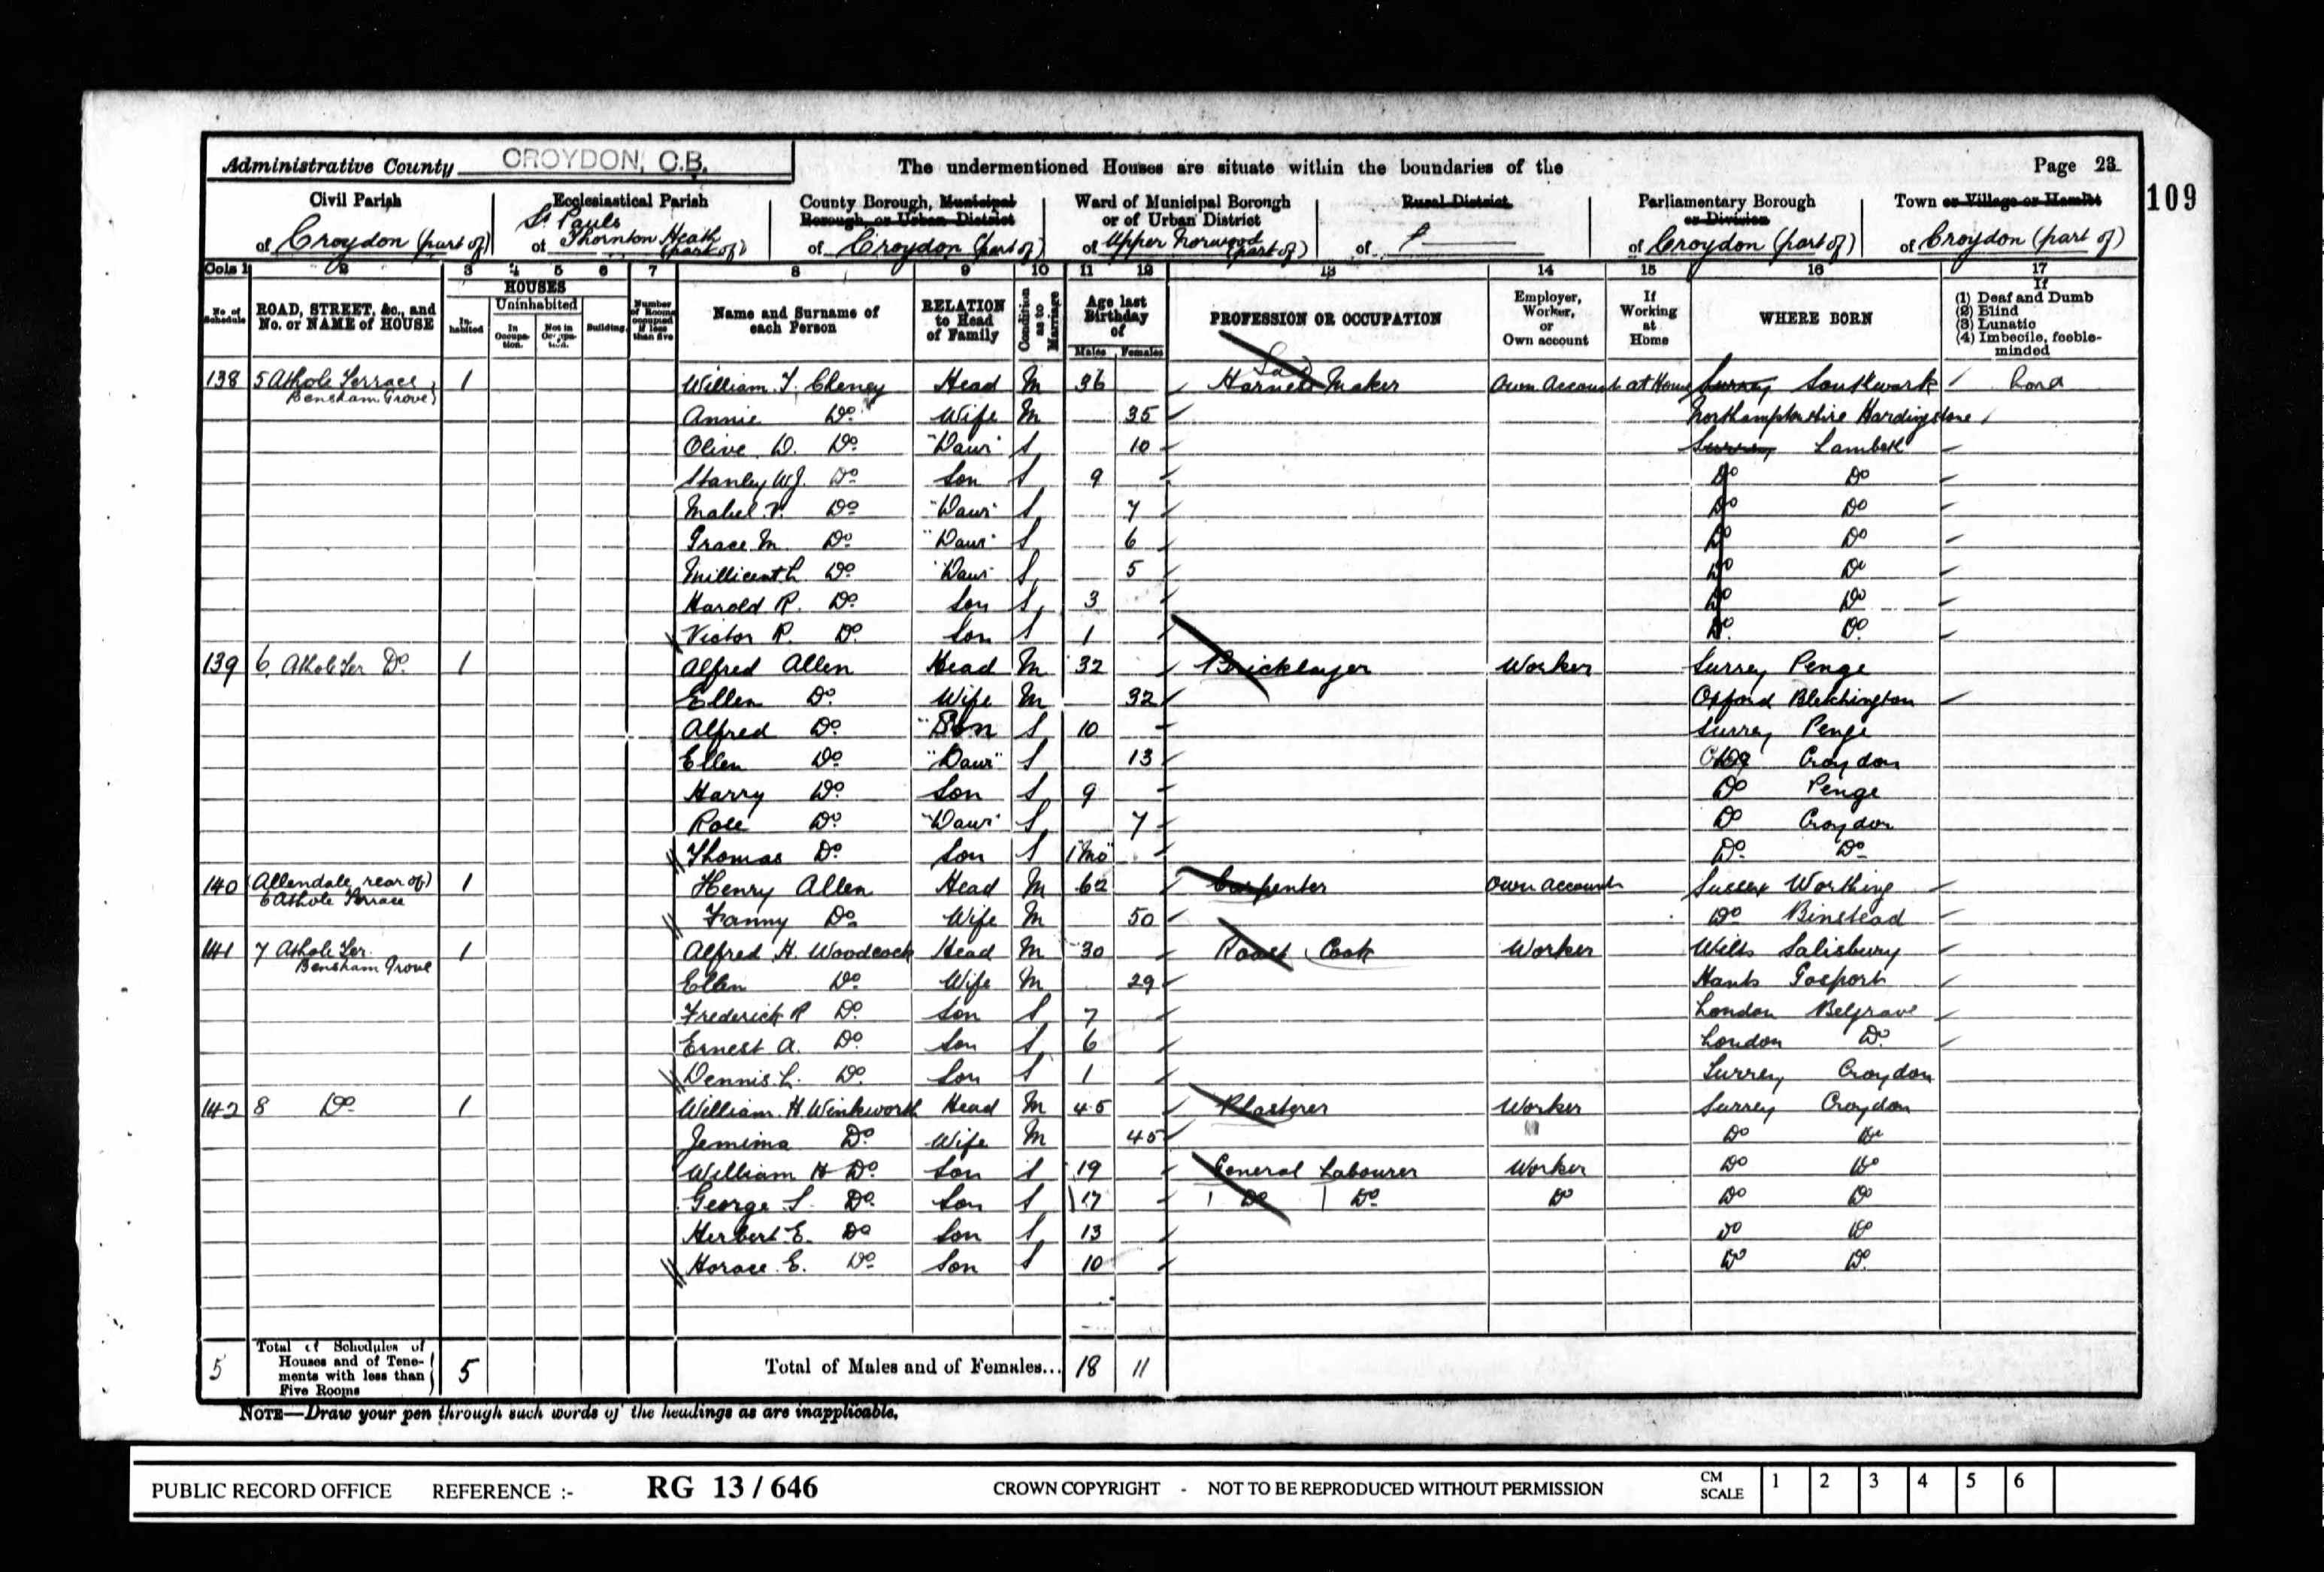 Administrative County CROYDON, C.B. The undermentioned Houses are situate within the boundaries of the Page 23
109
Civil Parish Ecclesiastical Parish County Borough, Municipal Borough, or Urban District Ward of Municipal Borough or of Urban District Rural District Parliamentary Borough or Division Town or Village or Hamlet
of Croydon (part of) of St Pauls Thornton Heath (part of) of Croydon (part of) of Upper Norwood (part of) of of Croydon (part of) of Croydon (part of)
Cols 1 2 3 4 5 6 7 8 9 10 11 12 13 14 15 16 17
No. of Schedule ROAD, STREET, &c., and No. or NAME of HOUSE HOUSES Inhabited Uninhabited In Occupation. Not in Occupation. Building. Number of Rooms occupied if less than five Name and Surname of each Person RELATION to Head of Family Condition as to Marriage Age last Birthday of Males Females PROFESSION OR OCCUPATION Employer, Worker, or Own account If Working at Home WHERE BORN If (1) Deaf and Dumb (2) Blind (3) Lunatic (4) Imbecile, feeble-minded
138 5 Athole Terrace, Bensham Grove 1 William T. Cheney Head M 36 Harness Maker Own Account at Home Surrey Southwark Lond
Annie Do Wife M 35 Northamptonshire Hardingstone
Olive W. Do Daur S 10 Surrey Lambeth
Stanley W.J. Do Son S 9 Do Do
Mabel V. Do Daur S 7 Do Do
Grace M. Do Daur S 6 Do Do
Millicent L Do Daur S 5 Do Do
Harold R. Do Son S 3 Do Do
Victor R. Do Son S 1 Do Do
139 6, Athole Ter Do 1 Alfred Allen Head M 32 Bricklayer Worker Surrey Penge
Ellen Do Wife M 32 Oxford Bletchington
Alfred Do Son S 10 Surrey Penge
Ellen Do Daur S 13 Do Croydon
Harry Do Son S 9 Do Penge
Rose Do Daur S 7 Do Croydon
Thomas Do Son S 1 Mo Do Do
140 (Allendale rear of) 6 Athole Terrace 1 Henry Allen Head M 62 Carpenter Own Account Sussex Worthing
Fanny Do Wife M 50 Do Binstead
141 7 Athole Ter. Bensham Grove 1 Alfred H. Woodcock Head M 30 Roast Cook Worker Wilts Salisbury
Ellen Do Wife M 29 Hants Gosport
Frederick R Do Son S 7 London Belgrave
Ernest A. Do Son S 6 London Do
Dennis L. Do Son S 1 Surrey Croydon
142 8 Do 1 William H. Winkworth Head M 45 Plasterer Worker Surrey Croydon
Jemima Do Wife M 45 Do Do
William H Do Son S 19 General Labourer Worker Do Do
George S. Do Son S 17 Do Do Do Do Do
Herbert E. Do Son S 13 Do Do
Horace E. Do Son S 10 Do Do
5 Total of Schedules of Houses and of Tenements with less than Five Rooms 5 Total of Males and of Females... 18 11
NOTE—Draw your pen through such words of the headings as are inapplicable.
PUBLIC RECORD OFFICE REFERENCE :- RG 13 / 646 CROWN COPYRIGHT - NOT TO BE REPRODUCED WITHOUT PERMISSION CM SCALE 1 2 3 4 5 6